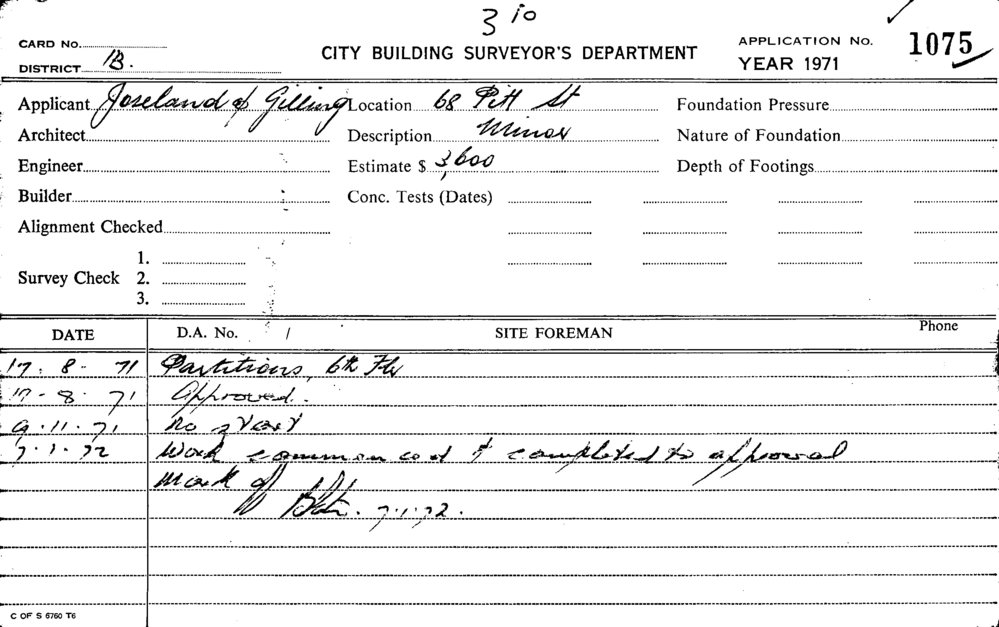 3 10
CARD No.
CITY BUILDING SURVEYOR'S DEPARTMENT
APPLICATION No. 1075
DISTRICT B.
YEAR 1971
Applicant Joseland & Gilling Location 68 Pitt St Foundation Pressure
Architect Description Minor Nature of Foundation
Engineer Estimate $ 3,600 Depth of Footings
Builder Conc. Tests (Dates)
Alignment Checked
1.
Survey Check 2.
3.
DATE D.A. No. / SITE FOREMAN Phone
17. 8. 71 Partitions, 6th Flr
17-8. 71 Approved.
9.11.71 no start
7.1.72 Work commenced & completed to approval
mark off
7.1.72.
C OF S 6760 T6